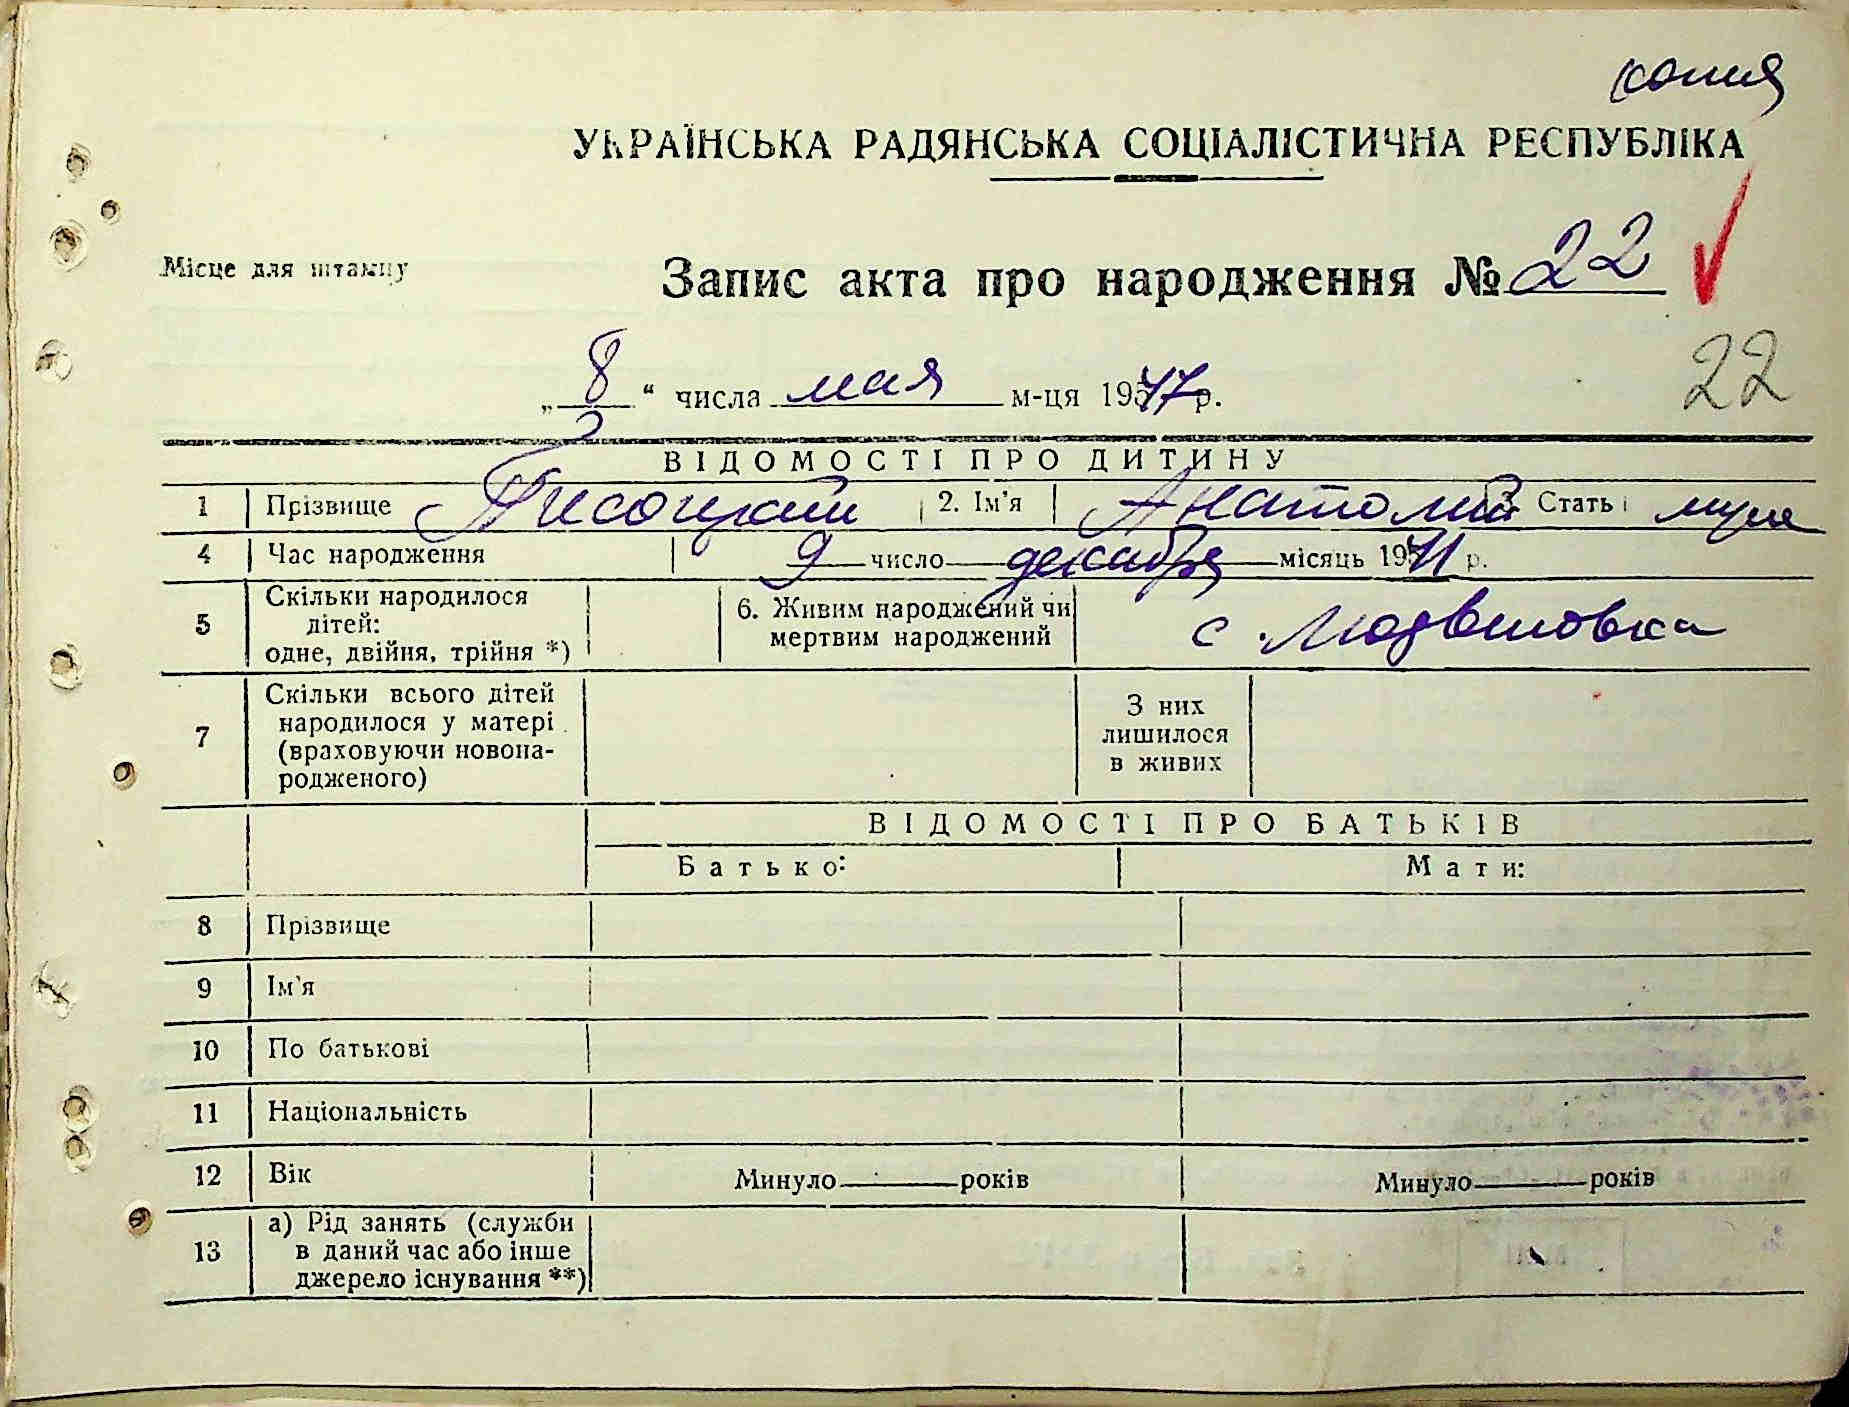 копия
УКРАЇНСЬКА РАДЯНСЬКА СОЦІАЛІСТИЧНА РЕСПУБЛІКА
Місце для штампу
Запис акта про народження № 22
22
„ 8 “ числа мая м-ця 1947 р.
ВІДОМОСТІ ПРО ДИТИНУ
1 Прізвище Писоцкий 2. Ім’я Анатолий 3. Стать муж
4 Час народження 9 число декабря місяць 1941 р.
5 Скільки народилося дітей: одне, двійня, трійня *) 6. Живим народжений чи мертвим народжений с. Людвиновка
7 Скільки всього дітей народилося у матері (враховуючи новонародженого) З них лишилося в живих
ВІДОМОСТІ ПРО БАТЬКІВ
Батько: Мати:
8 Прізвище
9 Ім’я
10 По батькові
11 Національність
12 Вік Минуло років Минуло років
13 а) Рід занять (служби в даний час або інше джерело існування **)